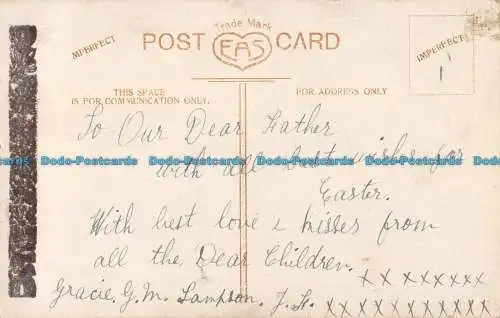 Trade Mark
IMPERFECT
POST EAS CARD
IMPERFECT
THIS SPACE
IS FOR COMMUNICATION ONLY.
FOR ADDRESS ONLY
To Our Dear Father
with all best wishes for
Dodo-Postcards Dodo-Postcards Dodo-Postcards Dodo-Postcards
Easter.
With best love & kisses from
all the Dear Children.
x x x x x x x x
Gracie. G. M. Sampson.
x x x x x x x x x x